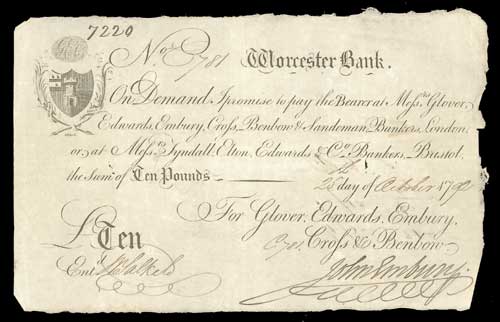 7220
No. 8781 Worcester Bank.
On Demand, I promise to pay the Bearer at Messrs. Glover,
Edwards, Embury, Cross, Benbow & Sandeman, Bankers, London
or at Messrs. Tyndall, Elton, Edwards & Co. Bankers, Bristol,
the Sum of Ten Pounds
25th day of October 1792
For Glover, Edwards, Embury,
£ Ten Cross & Benbow
Entd.
John Embury